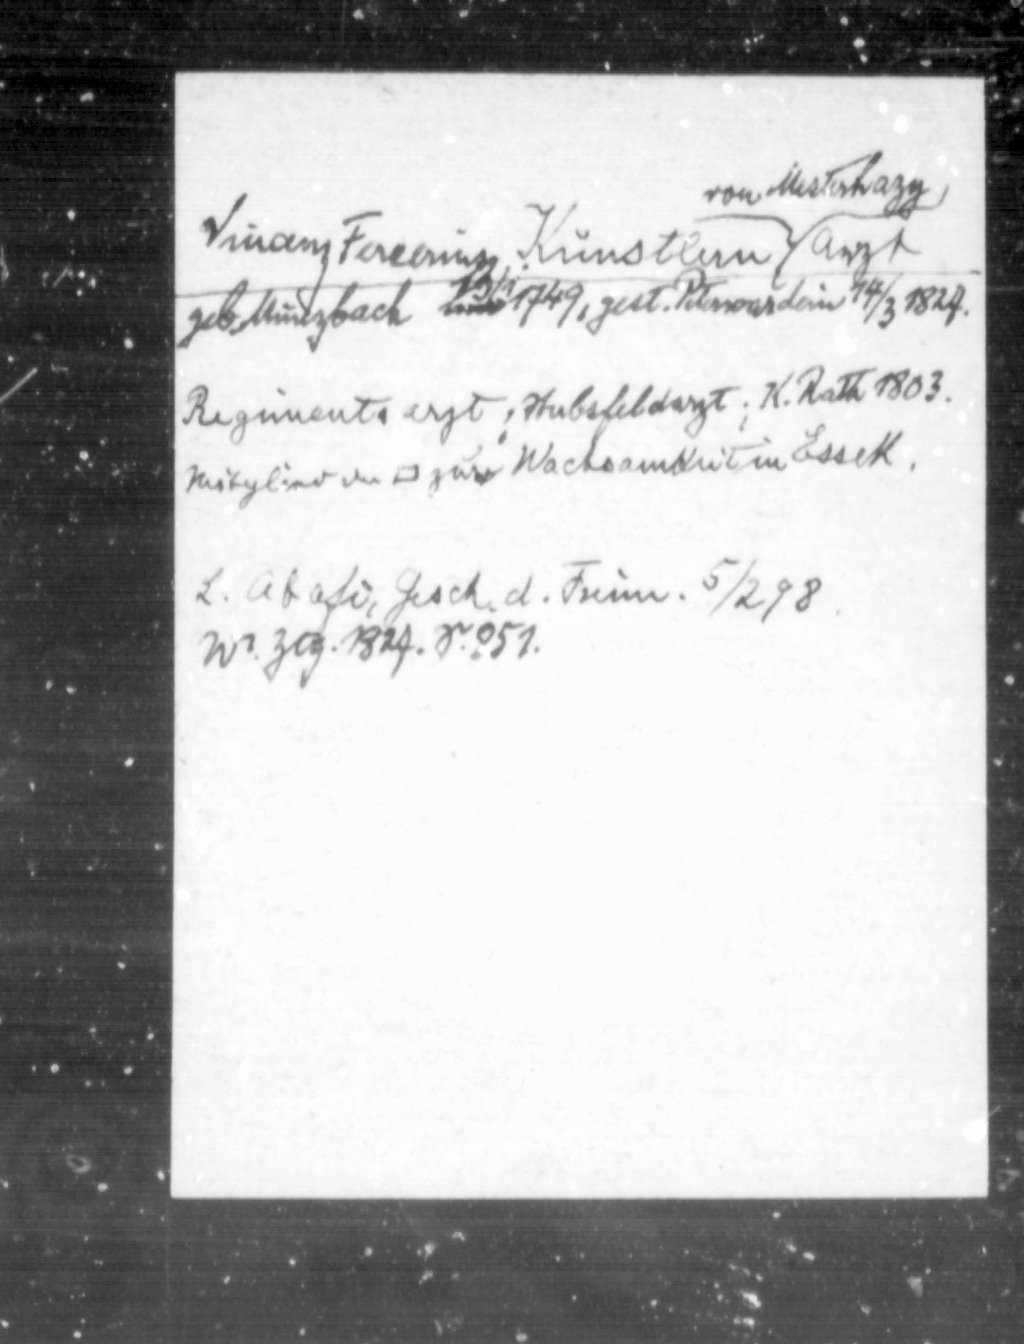 von Mesterhazy,
Vincenz Ferrerius Künstlern Arzt
geb. Münzbach 1749, gest. Peterwardein 14/3 1824.
Regimentsarzt, Stabsfeldarzt, K. Rath 1803.
Mitglied der □ zur Wachsamkeit in Essek.
L. Abafi, Gesch. d. Freim. 5/298.
Wr. Ztg. 1824. 951.